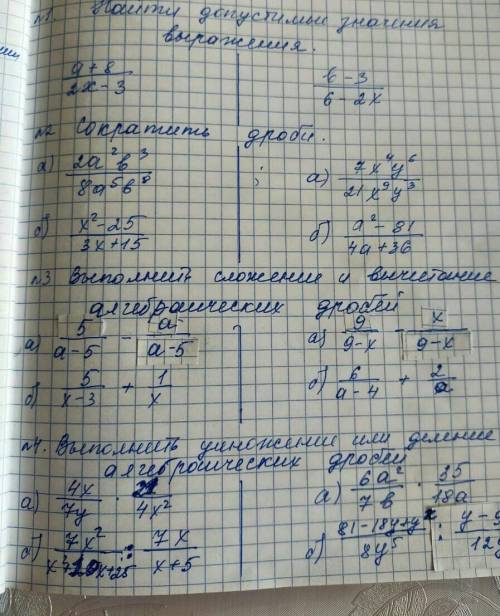 №1. Найти допустимые значения
выражения.
9+8/2x-3 b-3/6-2x
№2 Сократить дроби.
а) 2a²b³/8a⁵b⁸ ; а) 7x⁴y⁶/21x⁹y³
б) x²-25/3x+15 б) a²-81/4a+36
№3 Выполнить сложение и вычитание
алгебраических дробей
а) 5/a-5 - a/a-5 а) 9/9-x - x/9-x
б) 5/x-3 + 1/x б) 6/a-4 + 2/a
№4. Выполнить умножение или деление
алгебраических дробей
а) 4x/7y · /4x² а) 6a²/7b · 35/18a
б) 7x²/x²+10x+25 : 7x/x+5 б) 81-18y+y²/8y⁵ : y-9/12y